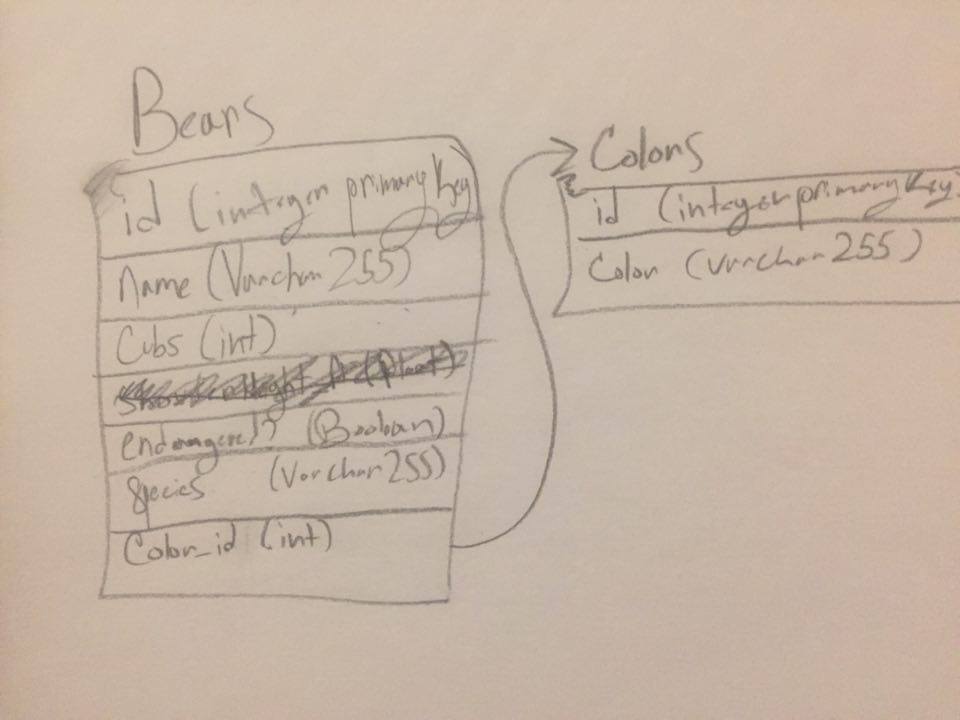 Bears
id (integer primary key
Name (Varchar 255)
Cubs (int)
endangered? (Boolean)
Species (Varchar 255)
Color_id (int)
Colors
id (integer primary key)
Color (varchar 255)